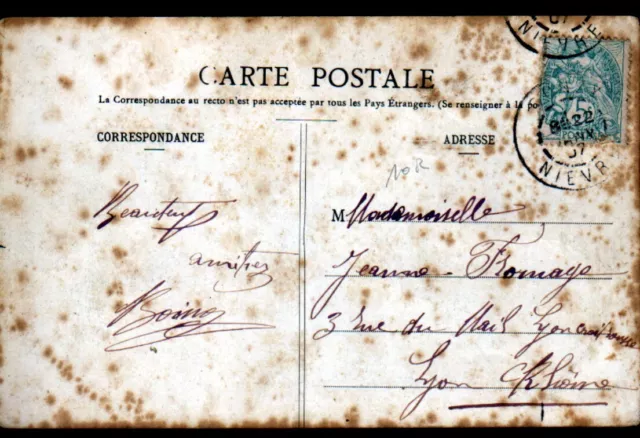 CARTE POSTALE
La Correspondance au recto n'est pas acceptée par tous les Pays Étrangers. (Se renseigner à la
CORRESPONDANCE
ADRESSE
NIÈVRE
5c
22
07
NIEVR
10R
amitiés
M Mademoiselle
Jeanne Fromage
3 Rue du Mail Lyon Croix-rousse
Lyon Rhône